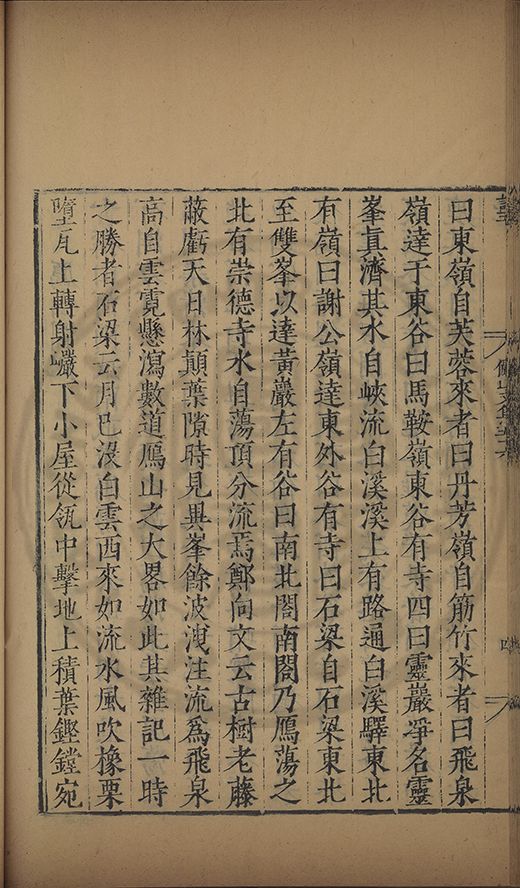 曰東嶺自芙蓉來者曰丹芳嶺自筋竹來者曰飛泉
嶺達于東谷曰馬鞍嶺東谷有寺四曰靈巖淨名靈
峯真濟其水自峽流白溪溪上有路通白溪驛東北
有嶺曰謝公嶺達東外谷有寺曰石梁自石梁東北
至雙峯以達黃巖左有谷曰南北閤南閤乃鴈蕩之
北有崇德寺水自蕩頂分流焉鄭向文云古樹老藤
蔽虧天日林顛葉隙時見異峯餘波洩注流爲飛泉
高自雲霓懸瀉數道鴈山之大畧如此其雜記一時
之勝者石梁云月已沒白雲西來如流水風吹橡栗
墮瓦上轉射巖下小屋從瓴中擊地上積葉鏗鏜宛